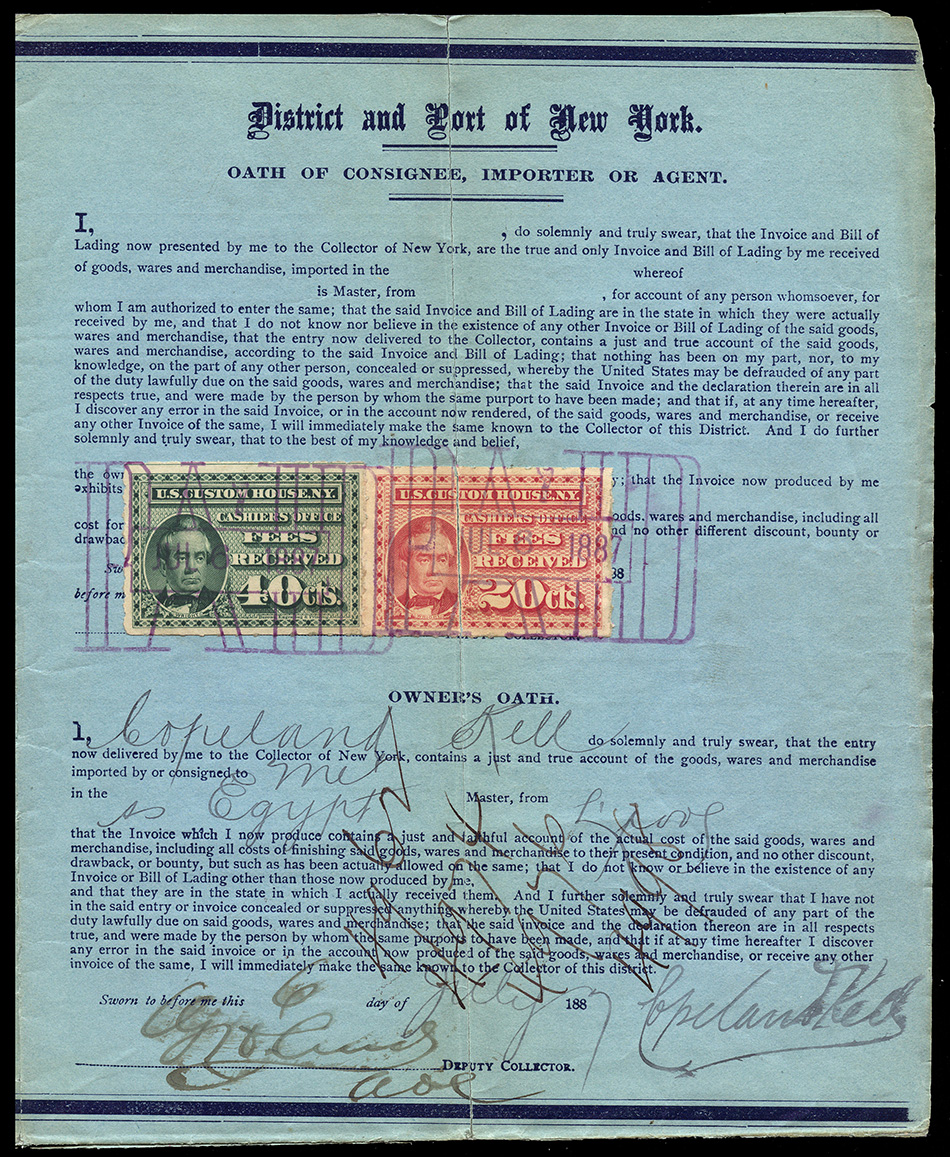 District and Port of New York.
OATH OF CONSIGNEE, IMPORTER OR AGENT.
I, , do solemnly and truly swear, that the Invoice and Bill of
Lading now presented by me to the Collector of New York, are the true and only Invoice and Bill of Lading by me received
of goods, wares and merchandise, imported in the whereof
is Master, from , for account of any person whomsoever, for
whom I am authorized to enter the same; that the said Invoice and Bill of Lading are in the state in which they were actually
received by me, and that I do not know nor believe in the existence of any other Invoice or Bill of Lading of the said goods,
wares and merchandise, that the entry now delivered to the Collector, contains a just and true account of the said goods,
wares and merchandise, according to the said Invoice and Bill of Lading; that nothing has been on my part, nor, to my
knowledge, on the part of any other person, concealed or suppressed, whereby the United States may be defrauded of any part
of the duty lawfully due on the said goods, wares and merchandise; that the said Invoice and the declaration therein are in all
respects true, and were made by the person by whom the same purport to have been made; and that if, at any time hereafter,
I discover any error in the said Invoice, or in the account now rendered, of the said goods, wares and merchandise, or receive
any other Invoice of the same, I will immediately make the same known to the Collector of this District. And I do further
solemnly and truly swear, that to the best of my knowledge and belief,
the own y; that the Invoice now produced by me
exhibits
cost for oods, wares and merchandise, including all
drawbac nd no other different discount, bounty or
Sw 88
before m
COLLECTOR.
U.S. CUSTOM HOUSE. N.Y.
CASHIER'S OFFICE
FEES
RECEIVED
40 CTS.
U.S. CUSTOM HOUSE. N.Y.
CASHIER'S OFFICE
FEES
RECEIVED
20 CTS.
PAID
JUL 6 1887
PAID
OWNER'S OATH.
I, Copeland Kell do solemnly and truly swear, that the entry
now delivered by me to the Collector of New York, contains a just and true account of the goods, wares and merchandise
imported by or consigned to me
in the ss Egypt Master, from L'pool
that the Invoice which I now produce contains a just and faithful account of the actual cost of the said goods, wares and
merchandise, including all costs of finishing said goods, wares and merchandise to their present condition, and no other discount,
drawback, or bounty, but such as has been actually allowed on the same; that I do not know or believe in the existence of any
Invoice or Bill of Lading other than those now produced by me,
and that they are in the state in which I actually received them. And I further solemnly and truly swear that I have not
in the said entry or invoice concealed or suppressed anything whereby the United States may be defrauded of any part of the
duty lawfully due on said goods, wares and merchandise; that the said invoice and the declaration thereon are in all respects
true, and were made by the person by whom the same purports to have been made, and that if at any time hereafter I discover
any error in the said invoice or in the account now produced of the said goods, wares and merchandise, or receive any other
invoice of the same, I will immediately make the same known to the Collector of this district.
Sworn to before me this 6 day of July 1887 Copeland Kell
DEPUTY COLLECTOR.